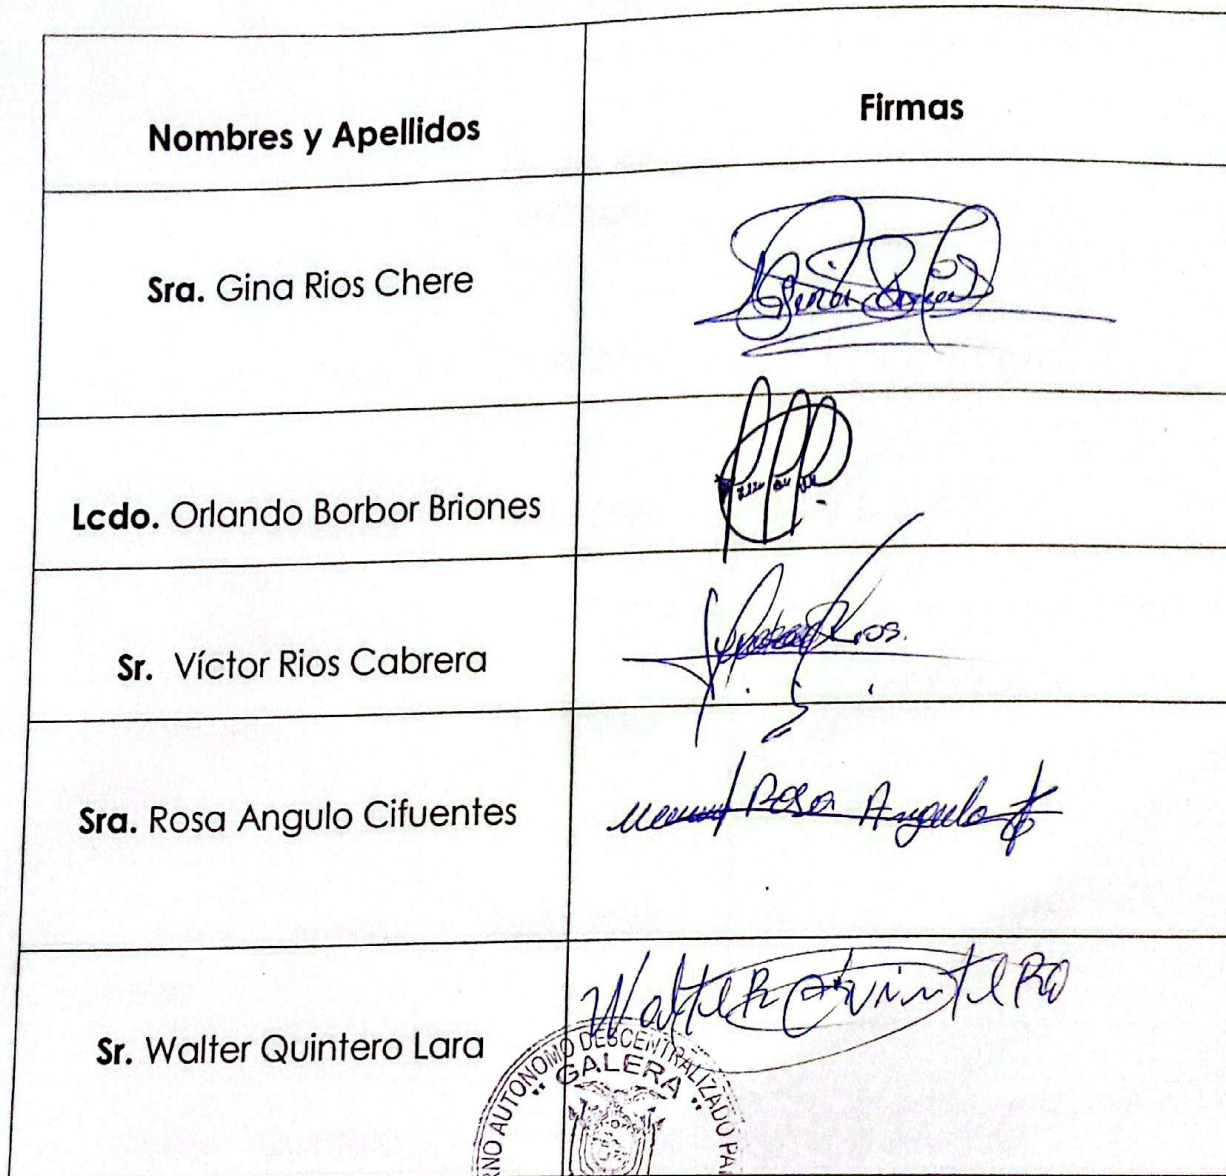 Nombres y Apellidos
Firmas
Sra. Gina Rios Chere
Lcdo. Orlando Borbor Briones
Sr. Víctor Rios Cabrera
Rios.
Sra. Rosa Angulo Cifuentes
Rosa Angulo
Sr. Walter Quintero Lara
Walter Quintero
RNO AUTONOMO DESCENTRALIZADO PA
"GALERA"